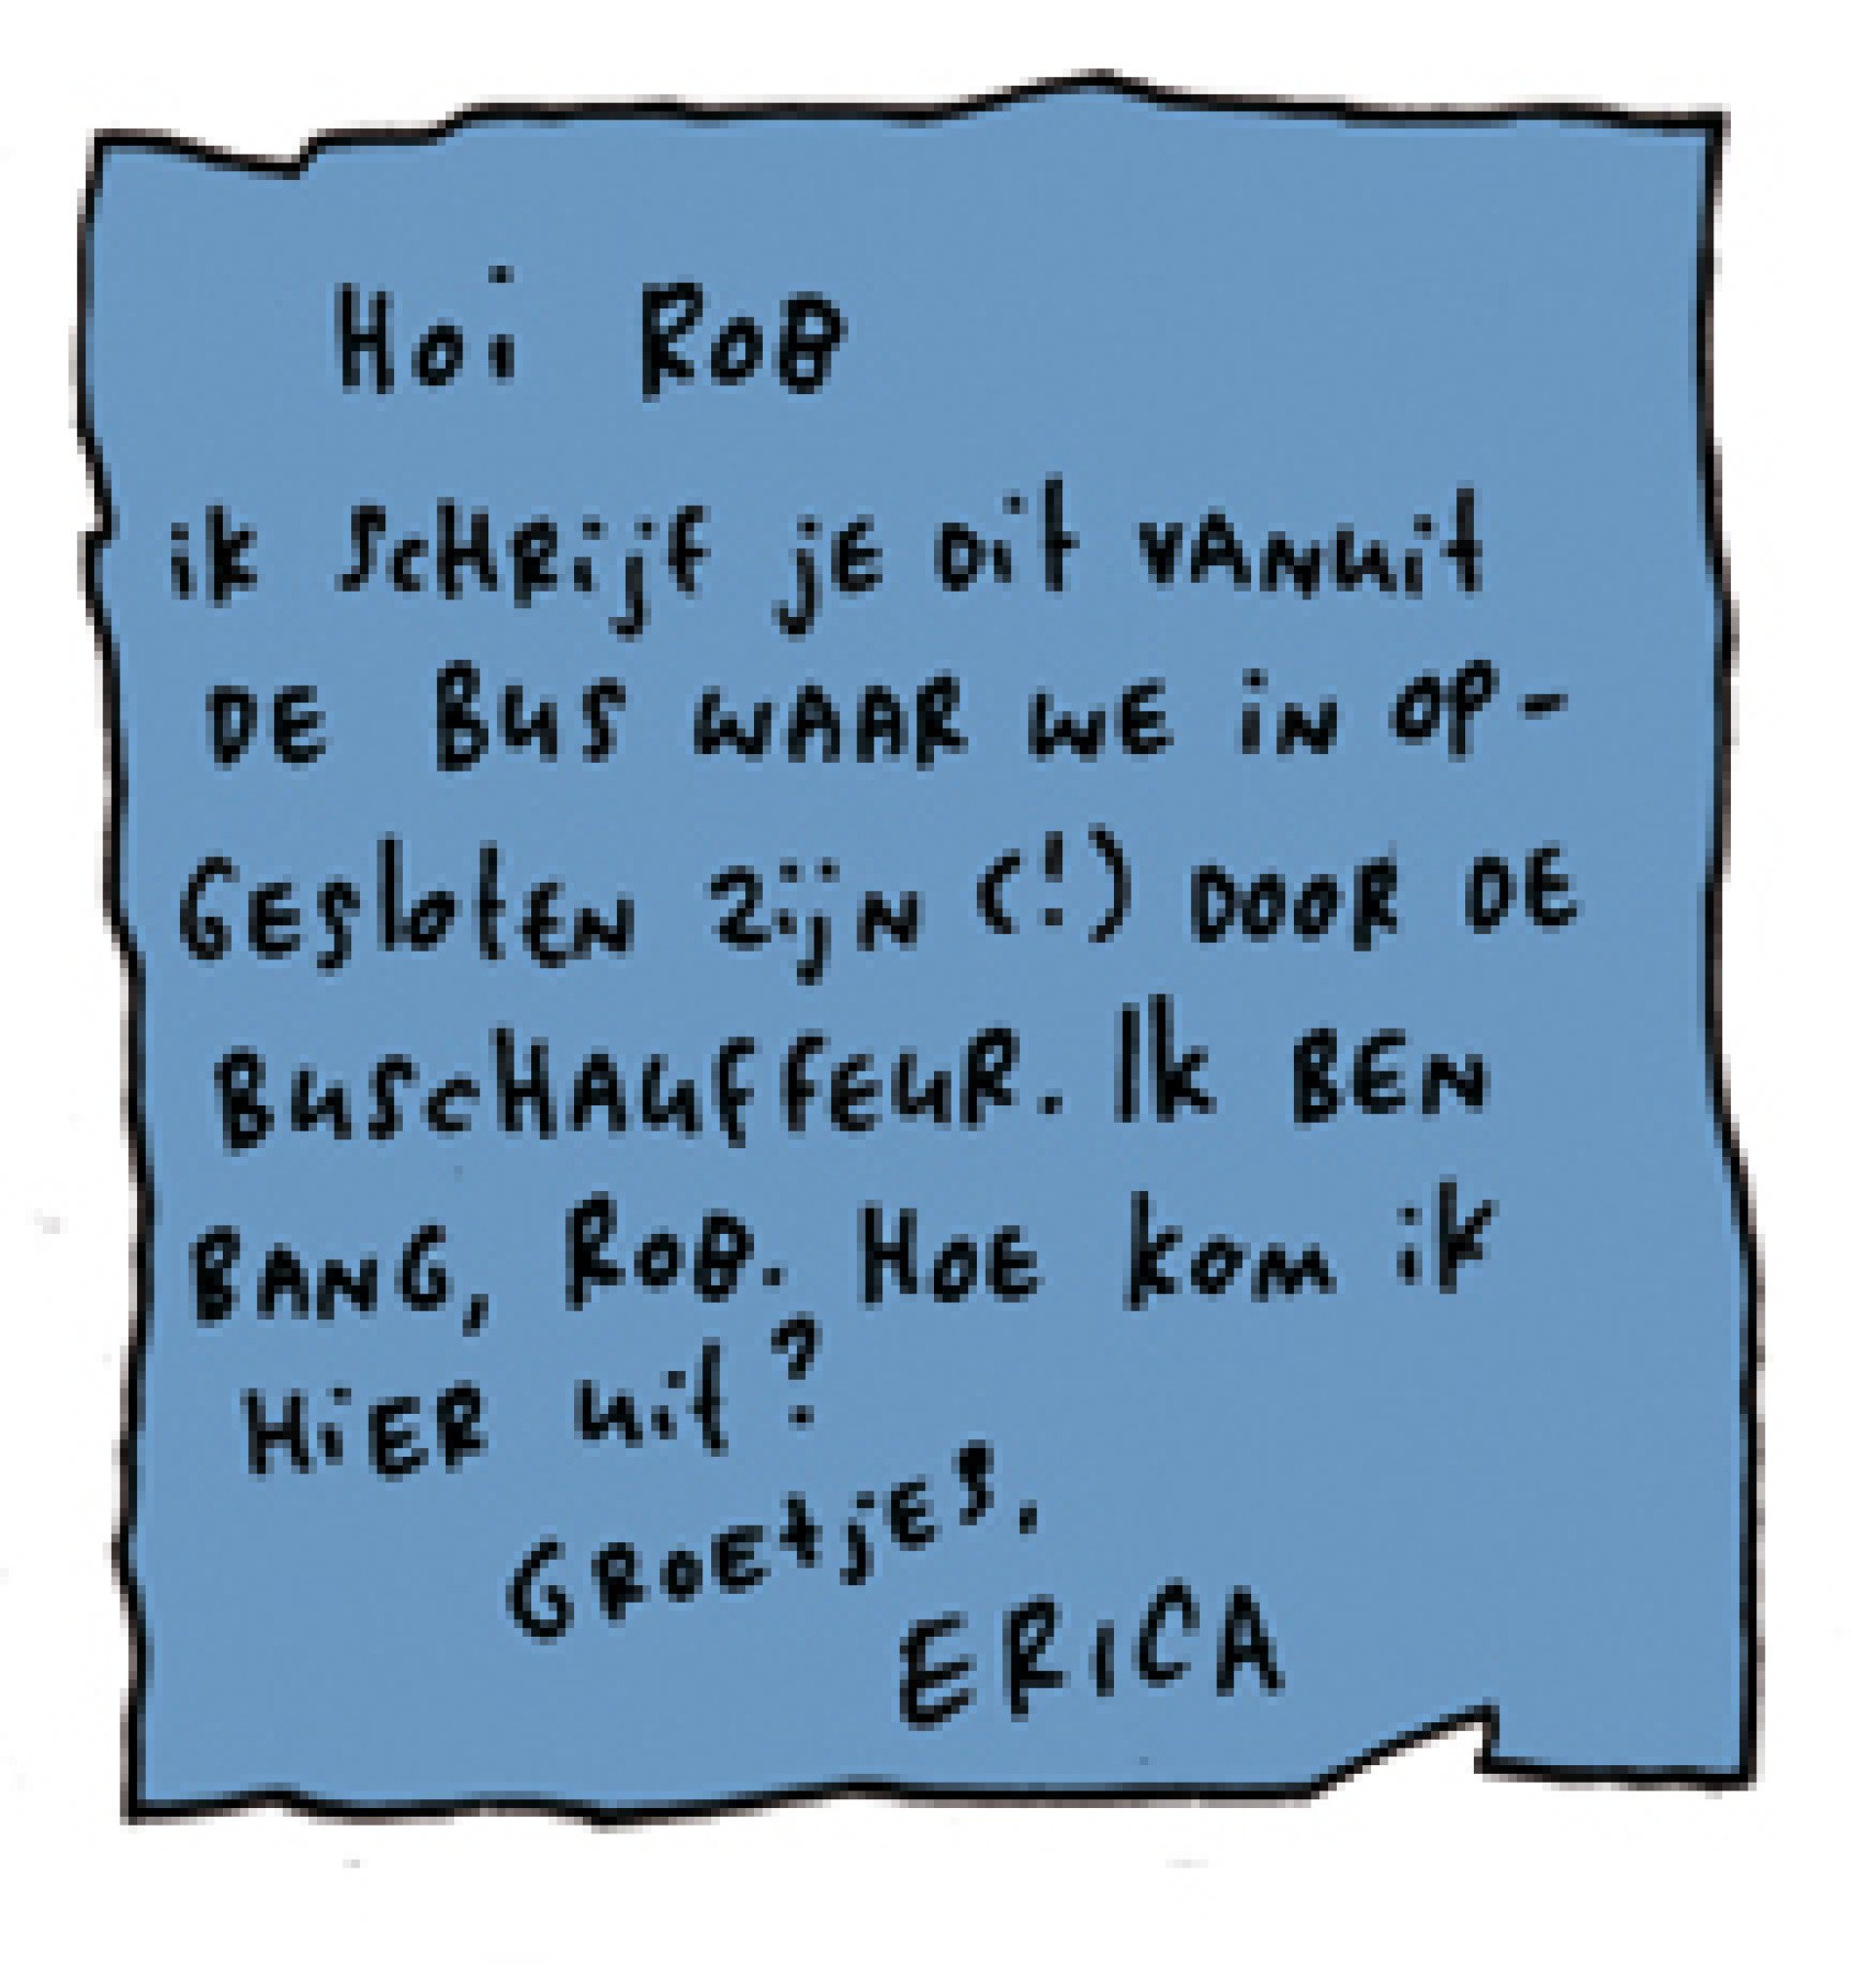 Hoi ROB
ik SCHRijf jE Dit VANuit
DE BuS WAAR WE iN OP-
GESloten ZijN (!) DOOR DE
BuSCHAuffEuR. Ik BEN
BANG, ROB. HOE kom ik
HiER uit?
GROEtjES,
ERICA